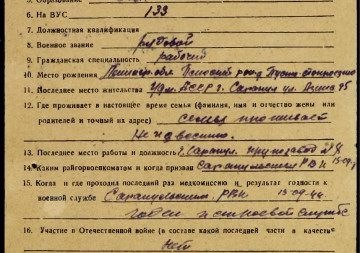 6. На ВУС 133
7. Должностная квалификация
8. Военное звание рядовой
9. Гражданская специальность рабочий
10. Место рождения
11. Последнее место жительства Удм. АССР г. Сарапул ул. 95
12. Где проживает в настоящее время семья (фамилия, имя и отчество жены или
родителей и точный их адрес) семья проживает
неизвестно.
13. Последнее место работы и должность г. Сарапул
14. Каким райгорвоенкоматом и когда призван Сарапульским РВК 13-09-
15. Когда и где проходил последний раз медкомиссию и результат годности к
военной службе Сарапульским РВК 13-09-44
годен к строевой службе
16. Участие в Отечественной войне (в составе какой последней части в качестве
нет